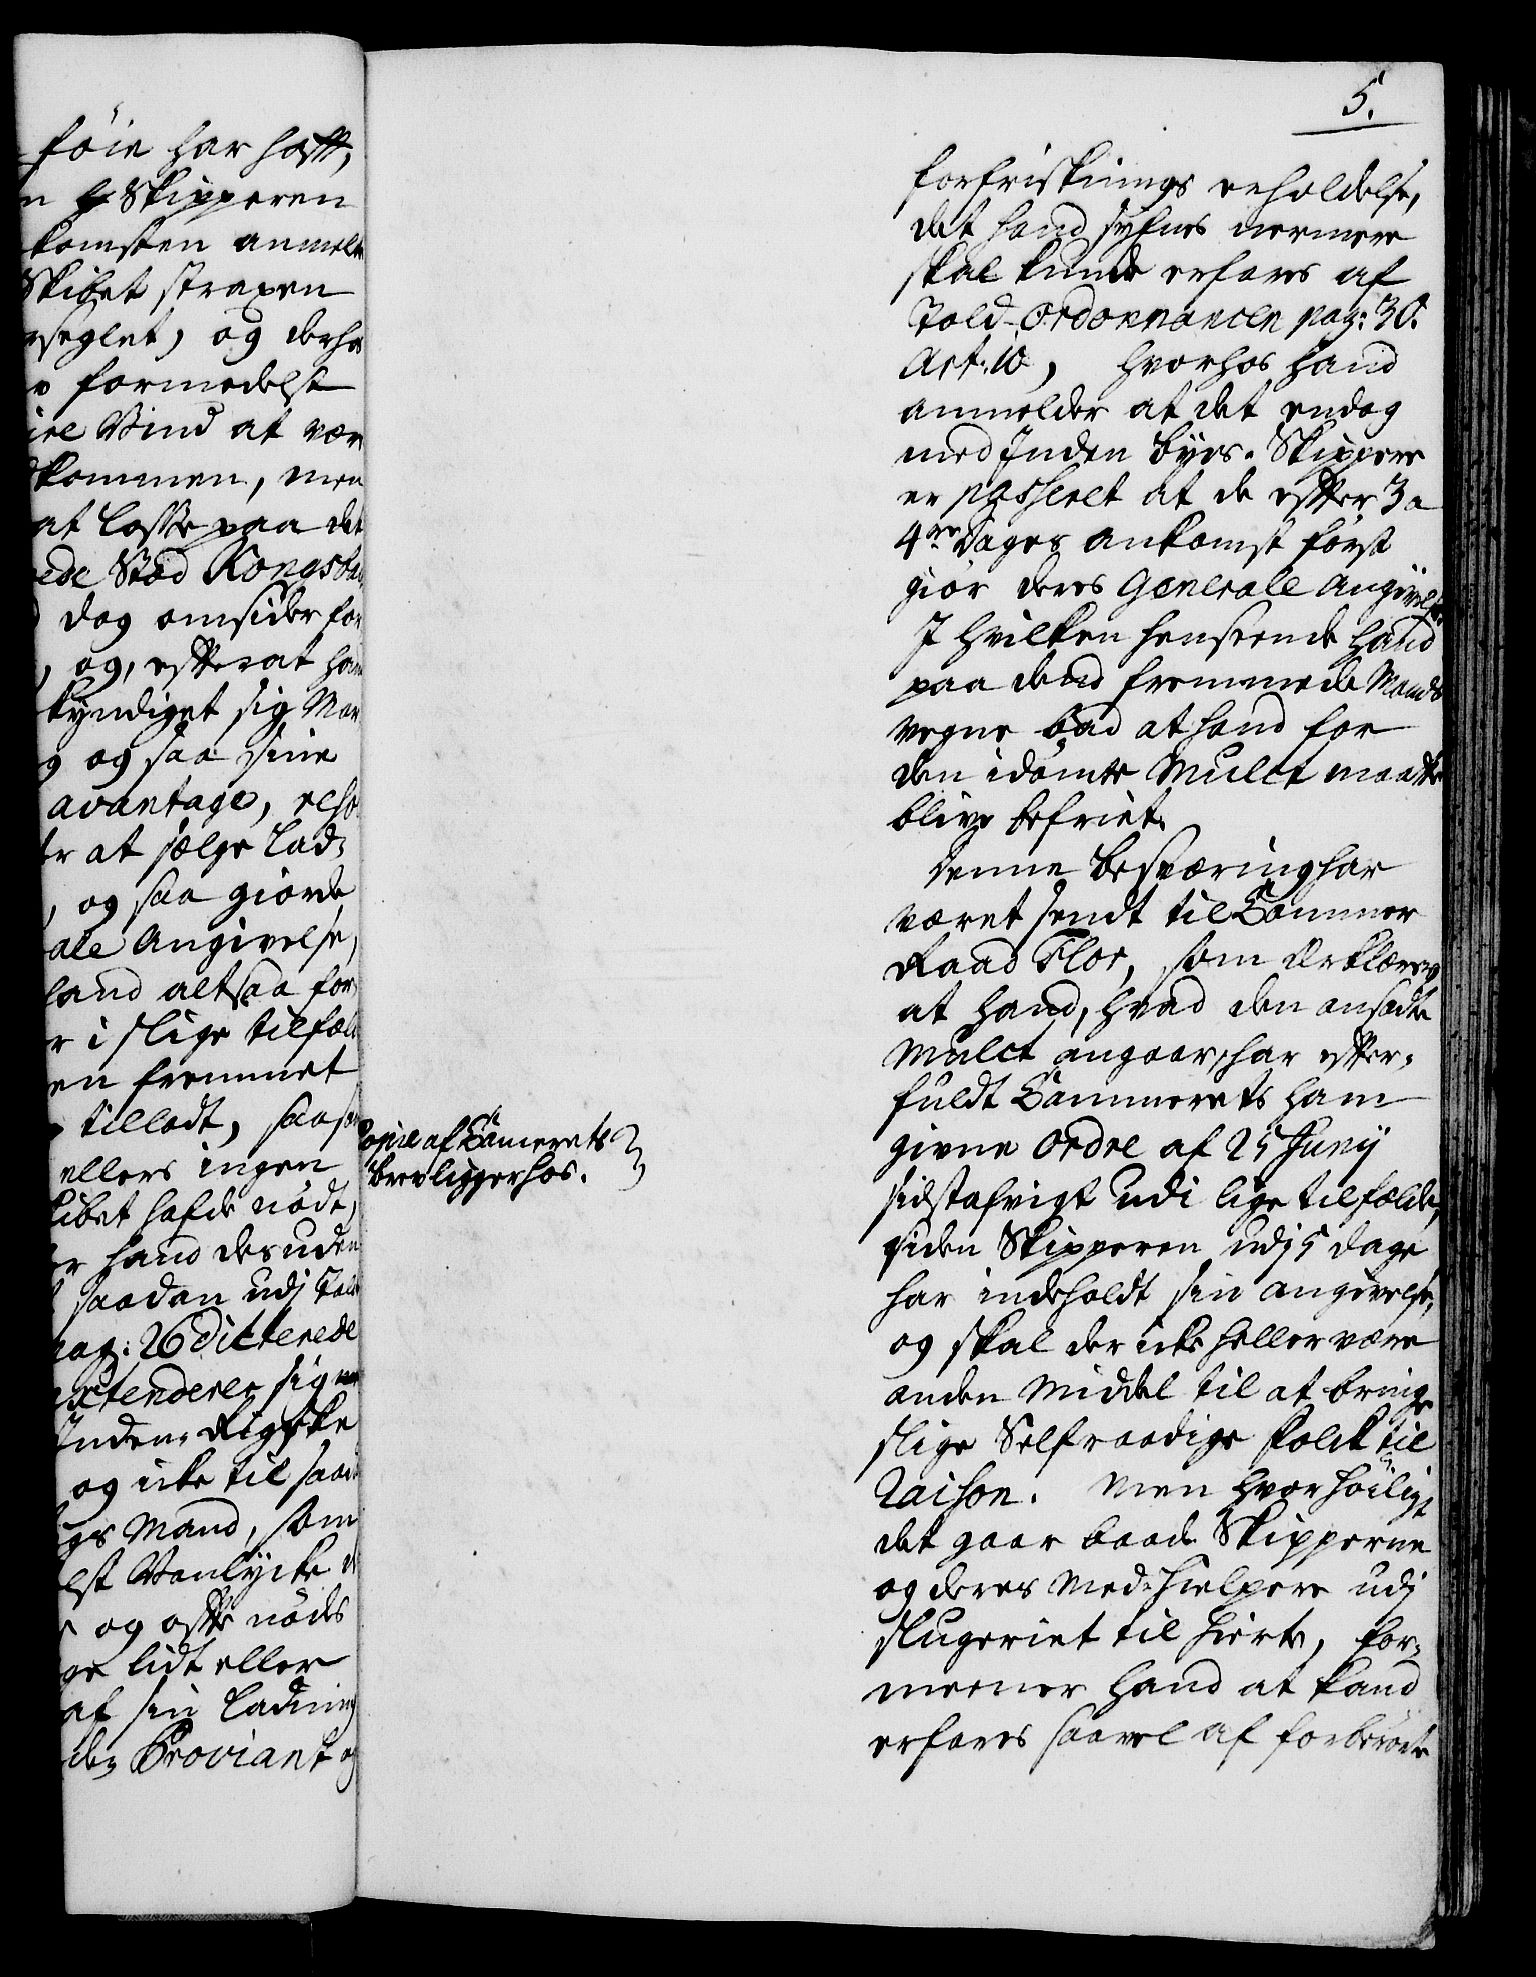 föie har hafft,
Skipperen
komsten anmelte
Skibet straxen
rseglet, og derhos
formedelst
ire Vind at være
kommen, men
at losse paa det
ede Stæd Kongsba
dog omsider for
, og, efterat hand
kyndiget sig Mar
og saa sine
avantage, reso
at sælge Lad-
, og saa giorde
ale Angivelse,
hand altsaa for
r i slige tilfæld
en fremmet
tilladt, saasom
ellers ingen
kibet hafde nödt,
hand desuden
saadan udj Told
pag: 26 dicterede
extenderer sig
Inden-Rigske
og icke til saad
gs Mand, som
lst Vanlycke
og offte nöds
ge lidt eller
af sin Ladning
den Proviant og
5.
forfrisknings erholdelse,
det hand syfnes nermere
skal kunde erfares af
Told-Ordonnancen pag: 30.
Art: 10, hvorhos hand
anmelder at det endog
med Inden byes-Skippere
er passeret at de effter 3 a
4re Dages ankomst först
giör deres Generale Angivelse
I hvilken henseende hand
paa dend fremmede Mands
vegne bad at hand for
den idömte Mulct maatte
blive befriet.
Denne besværing har
været sendt til Cammer
Raad Flor, som erklærer
at hand, hvad den ansatte
Mulct angaar, har effter-
fuldt Cammerets ham
givne Ordre af 25 Junij
sidstafvigt udi lige tilfælde,
siden Skipperen udj 5 dage
har indeholdt sin angivelse,
og skal der icke heller være
anden Middel til at bringe
slige Selfraadige Folck til
Raison. Men hvor höiligt
det gaar baade Skipperne
og deres Med-hielpere udj
slugeriet til hierte, for-
meener hand at kand
erfares saavel af forberörte
Copie af Cammerets
brev ligger hos.